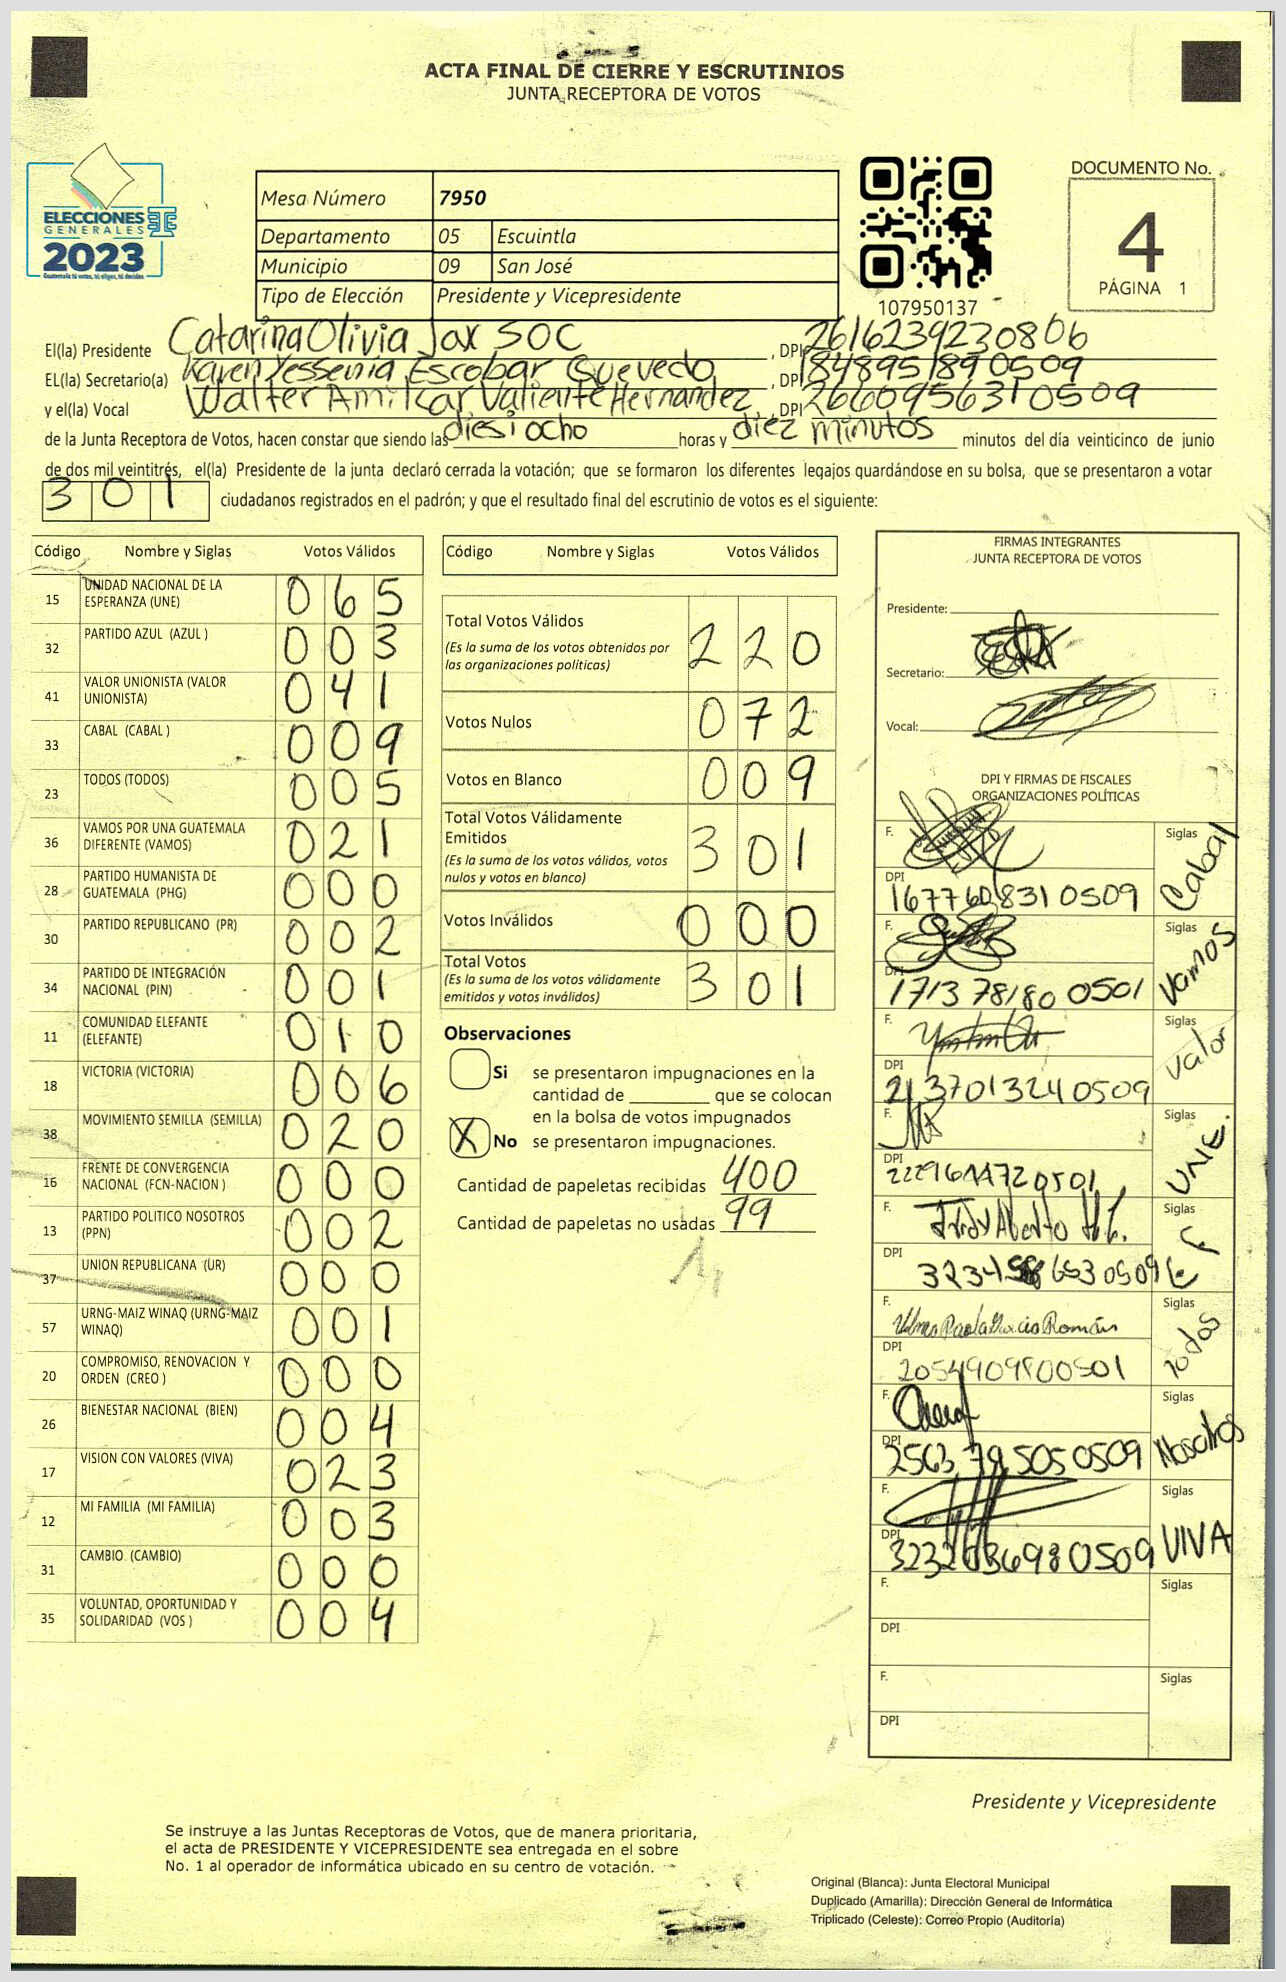 ACTA FINAL DE CIERRE Y ESCRUTINIOS
JUNTA RECEPTORA DE VOTOS
ELECCIONES
GENERALES
2023
Guatemala tú votas, tú eliges, tú decides
Mesa Número 7950
Departamento 05 Escuintla
Municipio 09 San José
Tipo de Elección Presidente y Vicepresidente
107950137
DOCUMENTO No.
4
PÁGINA 1
El(la) Presidente Catarina Olivia Jax SOC , DPI 2616239230806
EL(la) Secretario(a) Karen Yessenia Escobar Quevedo , DPI 1848951890509
y el(la) Vocal Walter Amilcar Valiente Hernandez , DPI 2660956310509
de la Junta Receptora de Votos, hacen constar que siendo las diesiocho horas y diez minutos minutos del día veinticinco de junio
de dos mil veintitrés, el(la) Presidente de la junta declaró cerrada la votación; que se formaron los diferentes legajos quardándose en su bolsa, que se presentaron a votar
301 ciudadanos registrados en el padrón; y que el resultado final del escrutinio de votos es el siguiente:
Código Nombre y Siglas Votos Válidos
15 UNIDAD NACIONAL DE LA ESPERANZA (UNE) 065
32 PARTIDO AZUL (AZUL ) 003
41 VALOR UNIONISTA (VALOR UNIONISTA) 041
33 CABAL (CABAL ) 009
23 TODOS (TODOS) 005
36 VAMOS POR UNA GUATEMALA DIFERENTE (VAMOS) 021
28 PARTIDO HUMANISTA DE GUATEMALA (PHG) 000
30 PARTIDO REPUBLICANO (PR) 002
34 PARTIDO DE INTEGRACIÓN NACIONAL (PIN) 001
11 COMUNIDAD ELEFANTE (ELEFANTE) 010
18 VICTORIA (VICTORIA) 006
38 MOVIMIENTO SEMILLA (SEMILLA) 020
16 FRENTE DE CONVERGENCIA NACIONAL (FCN-NACION ) 000
13 PARTIDO POLITICO NOSOTROS (PPN) 002
37 UNION REPUBLICANA (UR) 000
57 URNG-MAIZ WINAQ (URNG-MAIZ WINAQ) 001
20 COMPROMISO, RENOVACION Y ORDEN (CREO ) 000
26 BIENESTAR NACIONAL (BIEN) 004
17 VISION CON VALORES (VIVA) 023
12 MI FAMILIA (MI FAMILIA) 003
31 CAMBIO (CAMBIO) 000
35 VOLUNTAD, OPORTUNIDAD Y SOLIDARIDAD (VOS ) 004
Código Nombre y Siglas Votos Válidos
Total Votos Válidos 220
(Es la suma de los votos obtenidos por
las organizaciones politicas)
Votos Nulos 072
Votos en Blanco 009
Total Votos Válidamente
Emitidos 301
(Es la suma de los votos válidos, votos
nulos y votos en blanco)
Votos Inválidos 000
Total Votos 301
(Es la suma de los votos válidamente
emitidos y votos inválidos)
Observaciones
Si se presentaron impugnaciones en la
cantidad de ________ que se colocan
en la bolsa de votos impugnados
X No se presentaron impugnaciones.
Cantidad de papeletas recibidas 400
Cantidad de papeletas no usadas 99
FIRMAS INTEGRANTES
JUNTA RECEPTORA DE VOTOS
Presidente:
Secretario:
Vocal:
DPI Y FIRMAS DE FISCALES
ORGANIZACIONES POLÍTICAS
F. Siglas Cabal
DPI 1677608310509
F. Siglas Vamos
DPI 1713781800501
F. Siglas Valor
DPI 2137013240509
F. Siglas UNE.
DPI
F. Siglas
DPI
F. Siglas Todos
DPI 2054909800501
F. Siglas Nosotros
DPI 2563795050509
F. Siglas VIVA
DPI
F. Siglas
DPI
F. Siglas
DPI
Presidente y Vicepresidente
Se instruye a las Juntas Receptoras de Votos, que de manera prioritaria,
el acta de PRESIDENTE Y VICEPRESIDENTE sea entregada en el sobre
No. 1 al operador de informática ubicado en su centro de votación.
Original (Blanca): Junta Electoral Municipal
Duplicado (Amarilla): Dirección General de Informática
Triplicado (Celeste): Correo Propio (Auditoría)